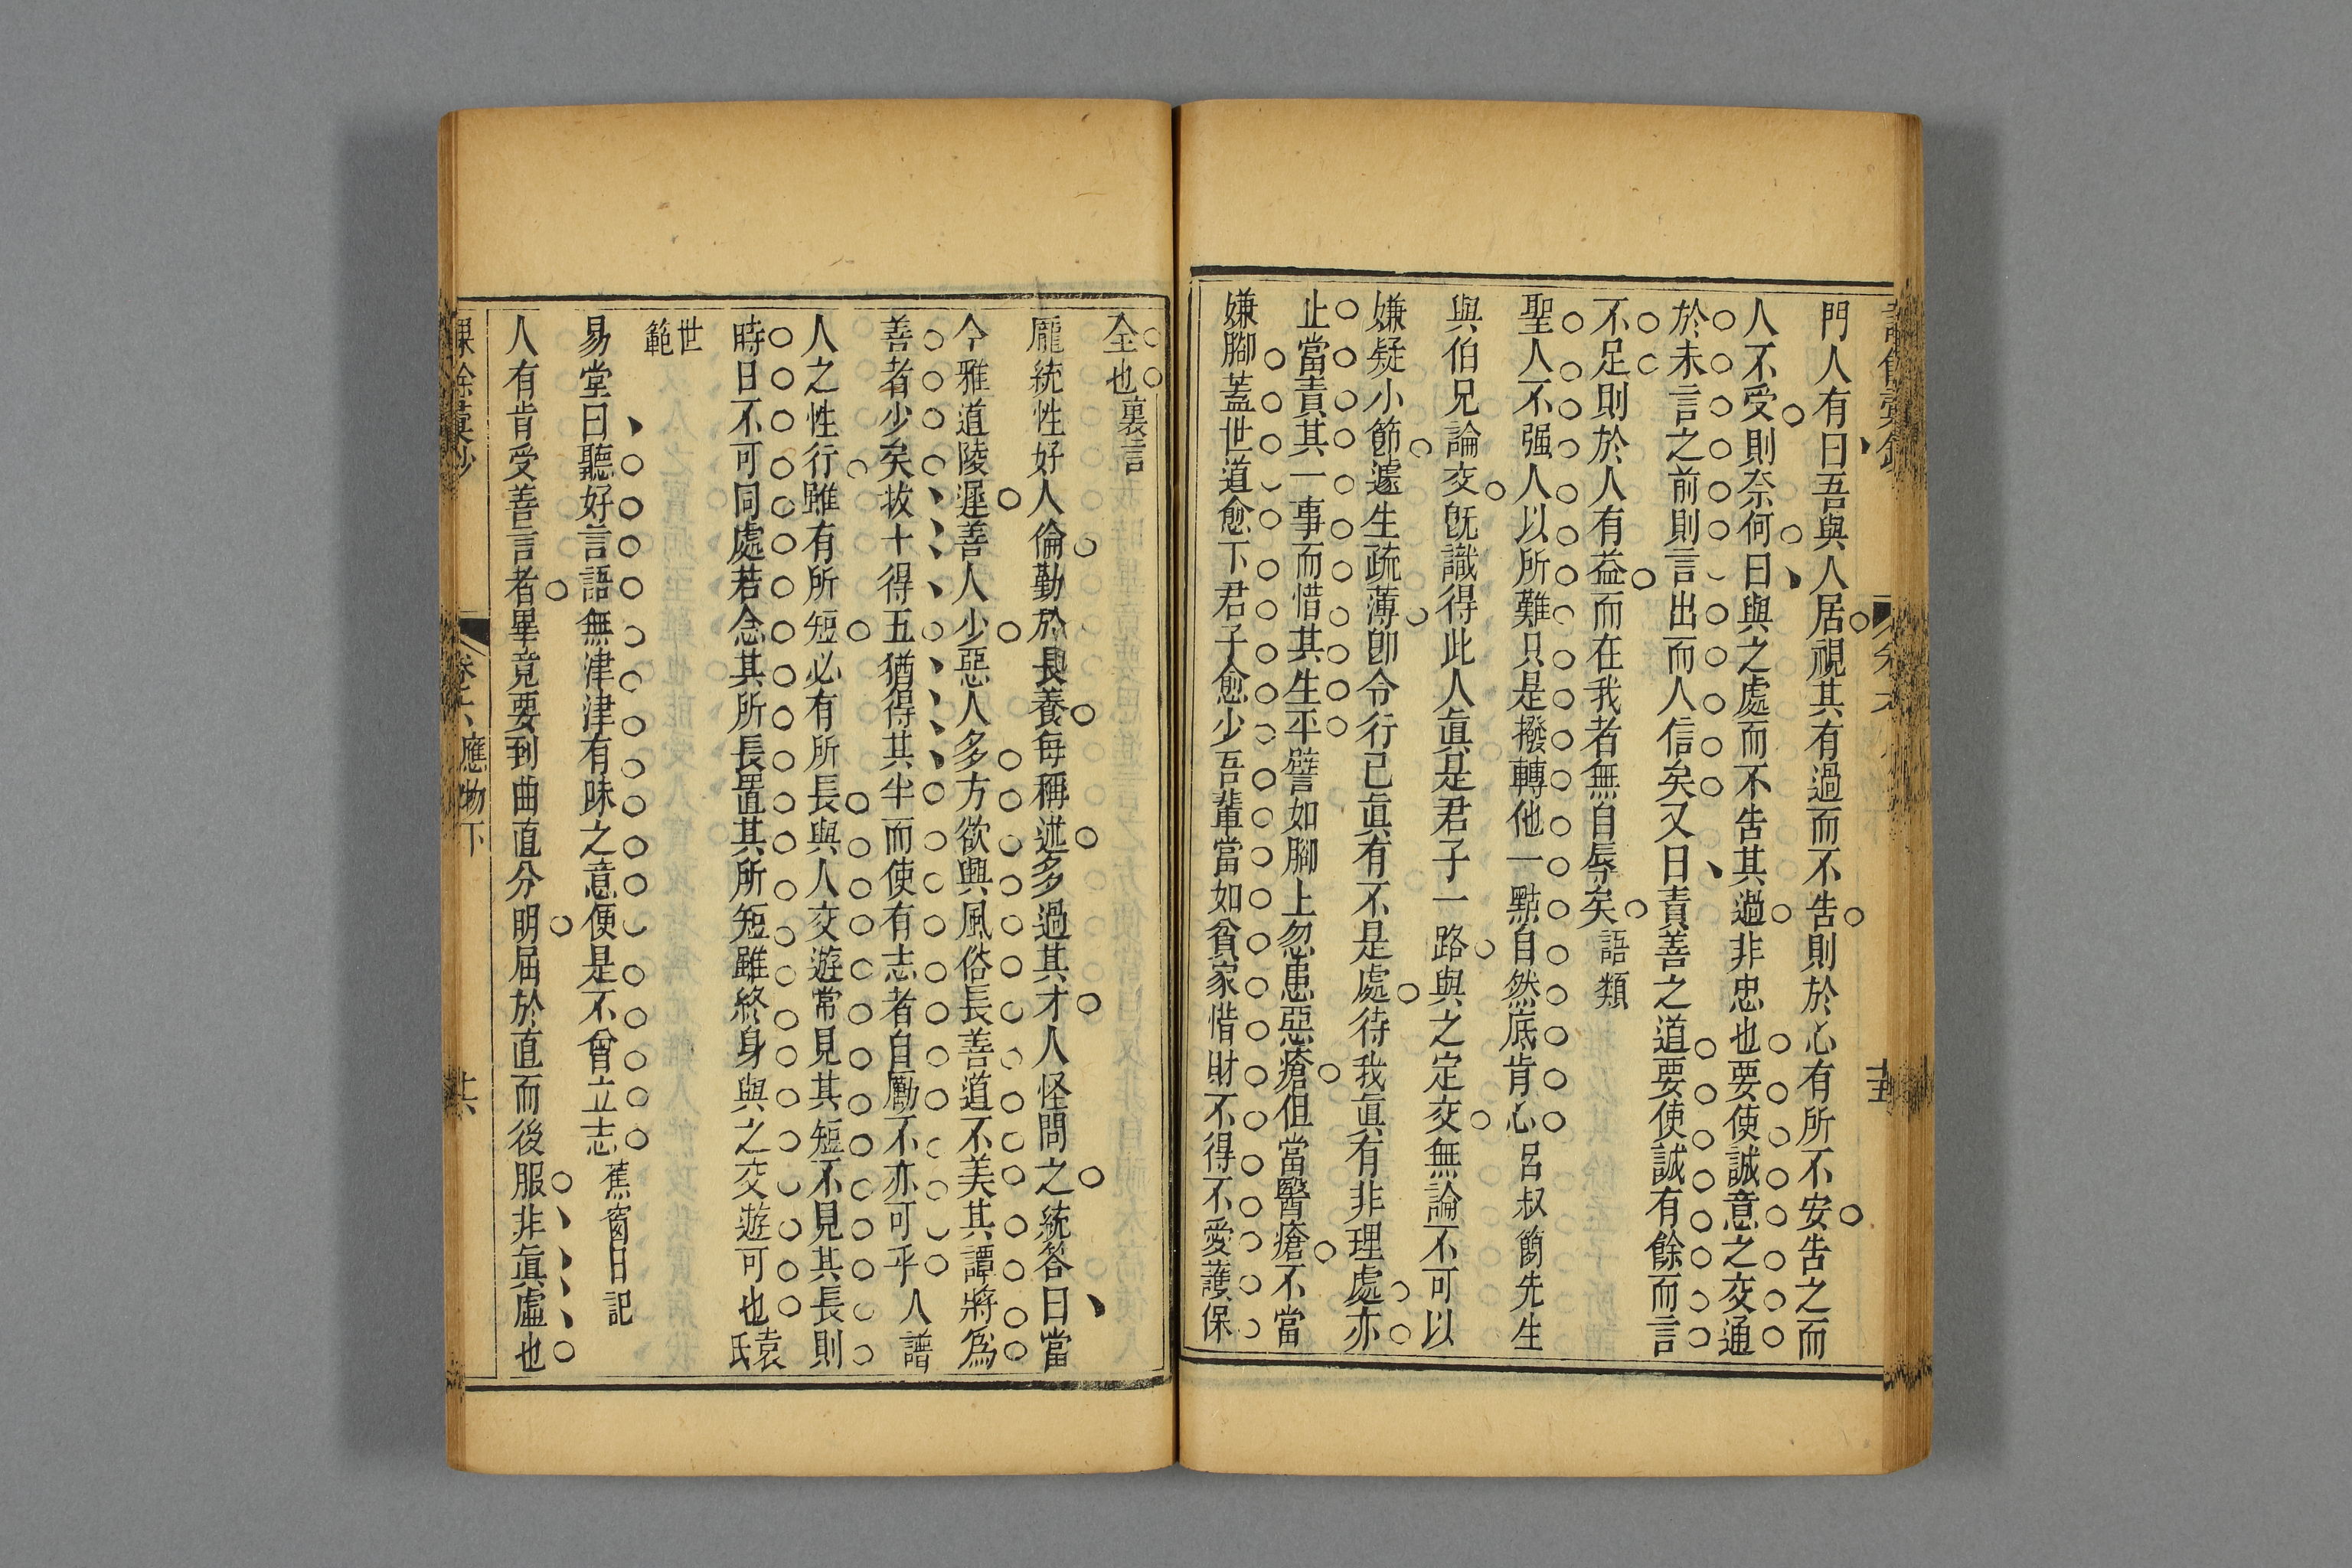 門人有曰吾與人居視其有過而不吿則於心有所不安吿之而
人不受則奈何曰與之處而不吿其過非忠也要使誠意之交通
於未言之前則言出而人信矣又曰責善之道要使誠有餘而言
不足則於人有益而在我者無自辱矣語類
聖人不强人以所難只是撥轉他一點自然底肯心呂叔簡先生
與伯兄論交旣識得此人眞是君子一路與之定交無論不可以
嫌疑小節遽生疏薄卽令行已眞有不是處待我眞有非理處亦
止當責其一事而惜其生平譬如腳上忽患惡瘡但當醫瘡不當
嫌腳蓋世道愈下君子愈少吾輩當如貧家惜財不得不愛護保
全也裏言
龐統性好人倫勤於長養每稱述多過其才人怪問之統答曰當
今雅道陵遲善人少惡人多方欲興風俗長善道不美其譚將爲
善者少矣拔十得五猶得其半而使有志者自勵不亦可乎人譜
人之性行雖有所短必有所長與人交遊常見其短不見其長則
時日不可同處若念其所長置其所短雖終身與之交遊可也袁氏
世範
易堂曰聽好言語無津津有味之意便是不曾立志蕉窗日記
人有肯受善言者畢竟要到曲直分明屈於直而後服非眞虛也
課餘彙鈔
應物下